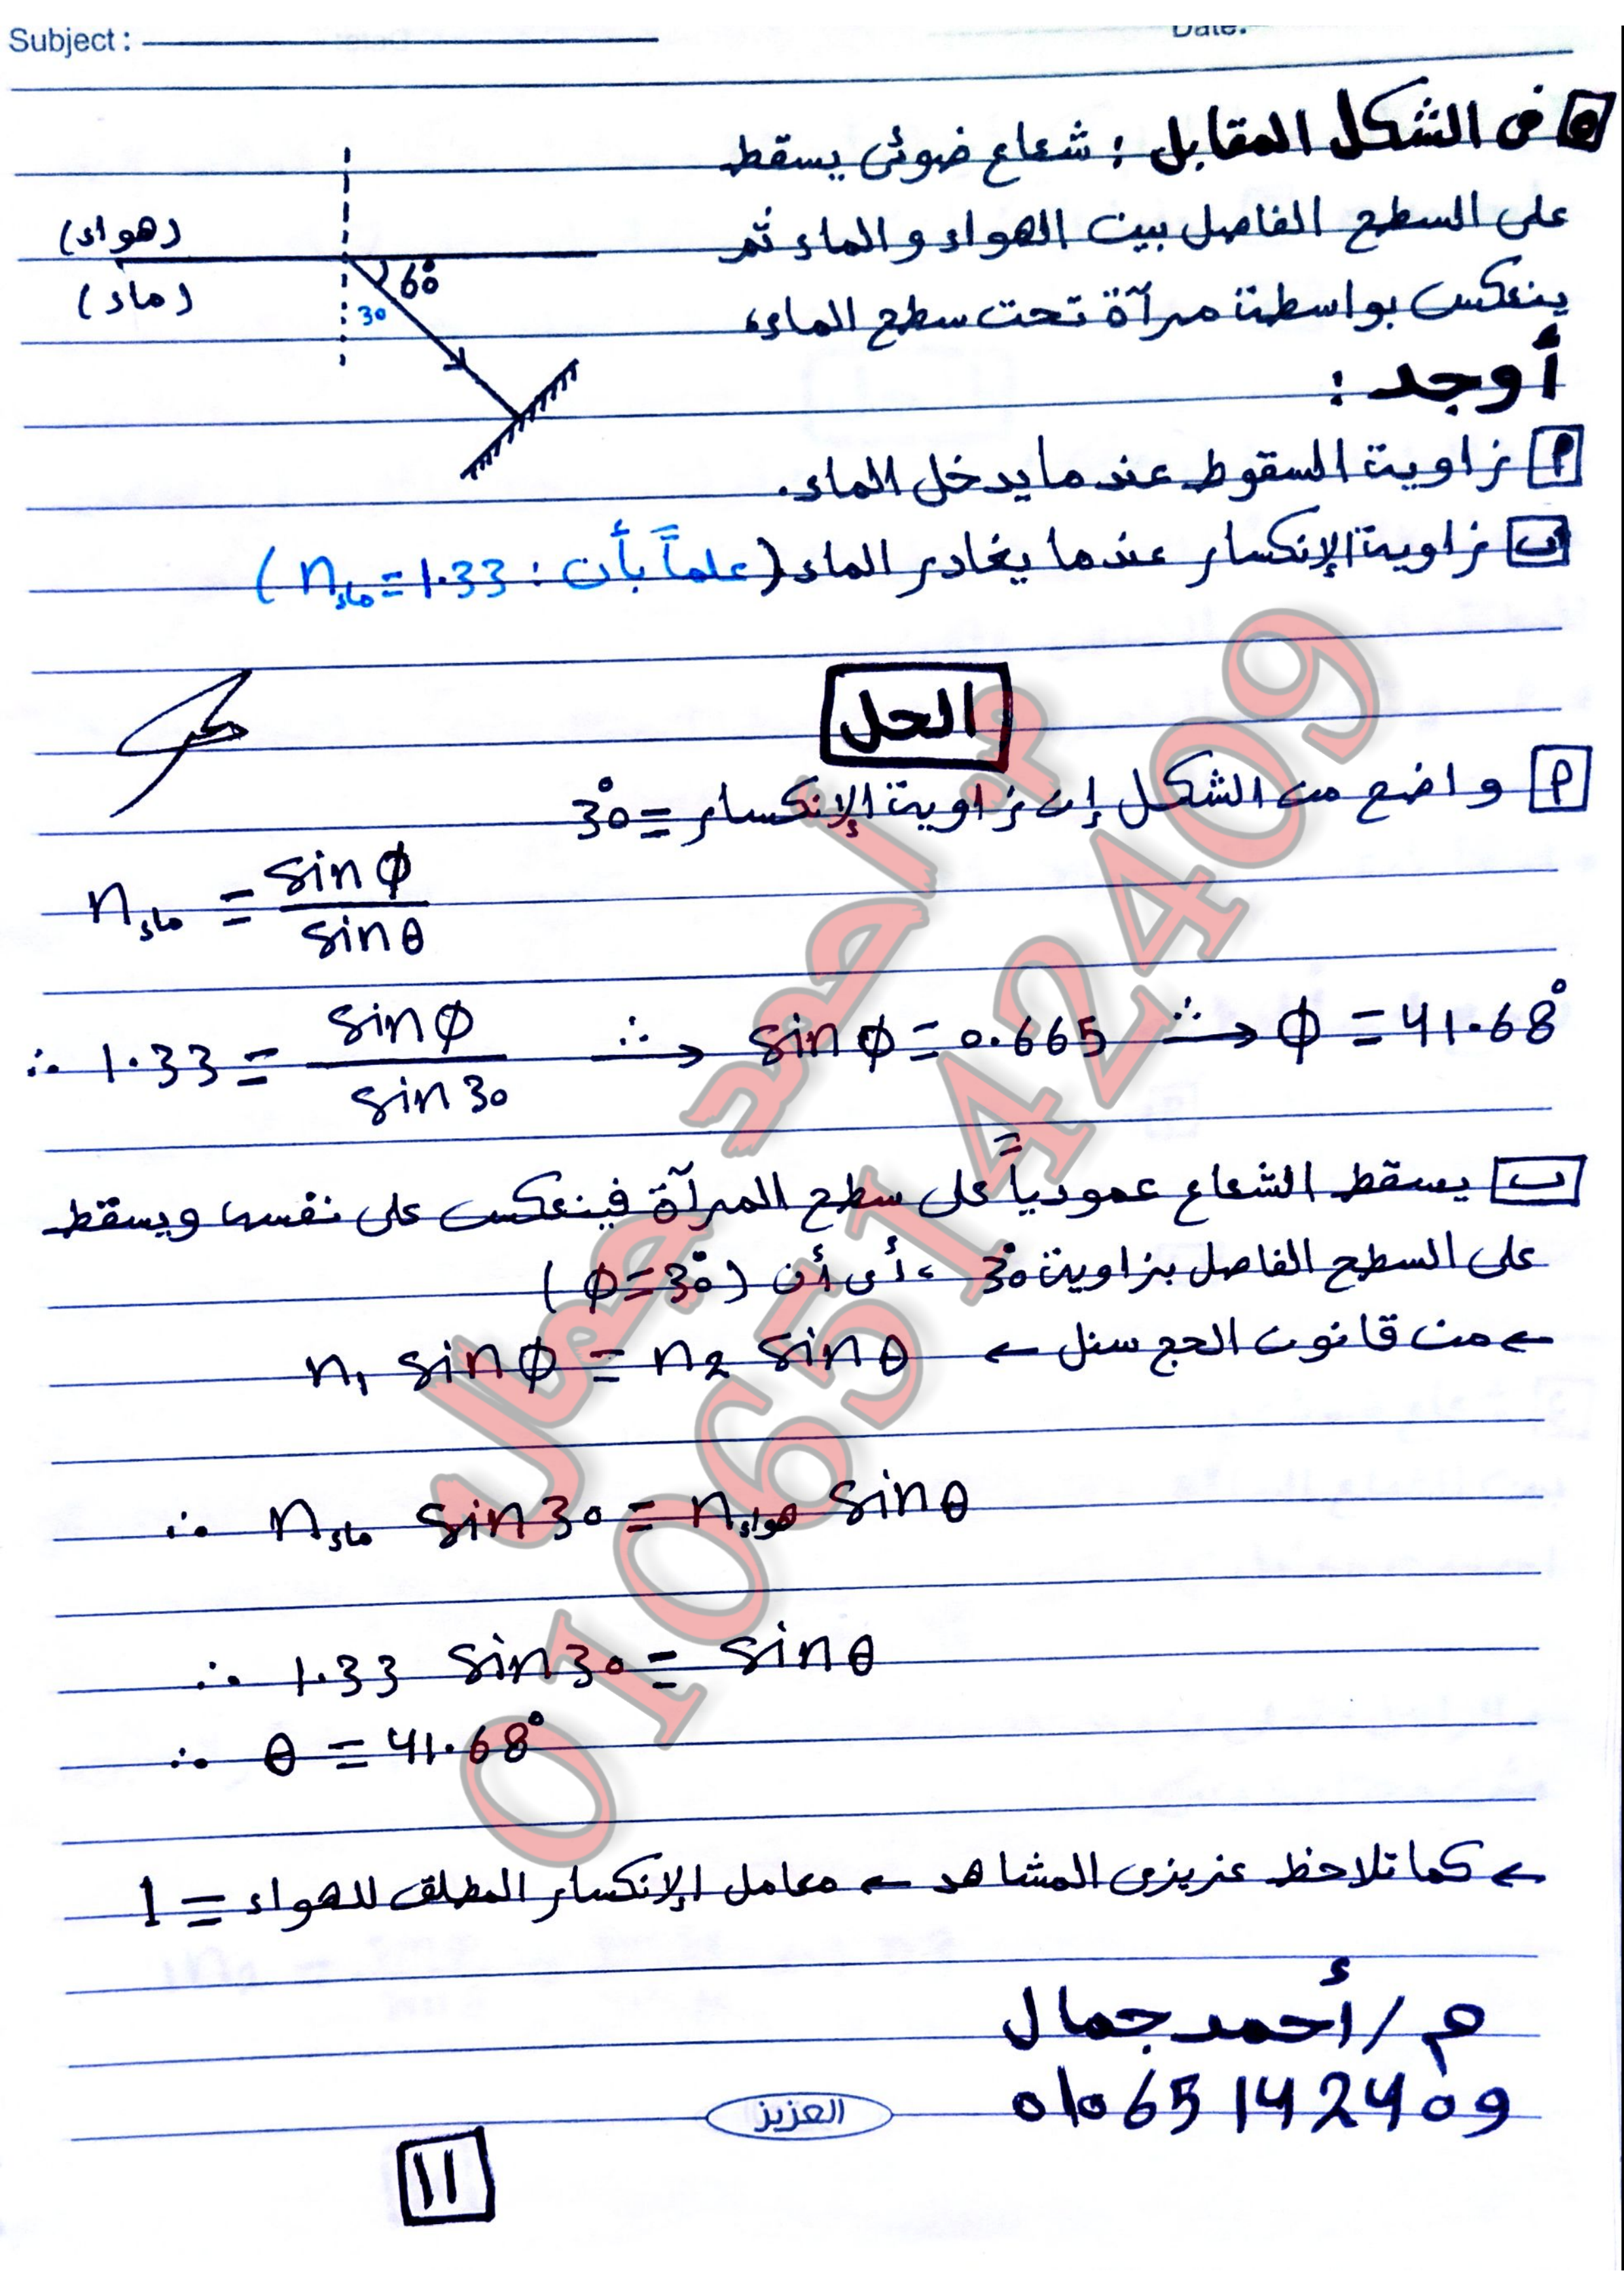 Subject :
Date:
٥ فى الشكل المقابل : شعاع ضوئى يسقط
على السطح الفاصل بين الهواء و الماء ثم
ينعكس بواسطة مرآة تحت سطح الماء،
أوجد :
(هواء)
(ماء)
60°
30
أ زاوية السقوط عندما يدخل الماء.
ب زاوية الإنكسار عندما يغادر الماء (علماً بأن : n ماء = 1.33)
الحل
أ واضح من الشكل إن زاوية الإنكسار = 30°
n ماء = sin φ / sin θ
∴ 1.33 = sin φ / sin 30 ∴→ sin φ = 0.665 ∴→ φ = 41.68°
ب يسقط الشعاع عمودياً على سطح المرآة فينعكس على نفسه ويسقط
على السطح الفاصل بزاوية 30° ، أى أن (φ = 30°)
← من قانون الحج سنل ← n₁ sin φ = n₂ sin θ
∴ n ماء sin 30 = n هواء sin θ
∴ 1.33 sin 30 = sin θ
∴ θ = 41.68°
← كما تلاحظ عزيزى المشاهد ← معامل الإنكسار المطلق للهواء = 1
م / أحمد جمال
01065142409
العزيز
11
م. أحمد جمال
01065142409